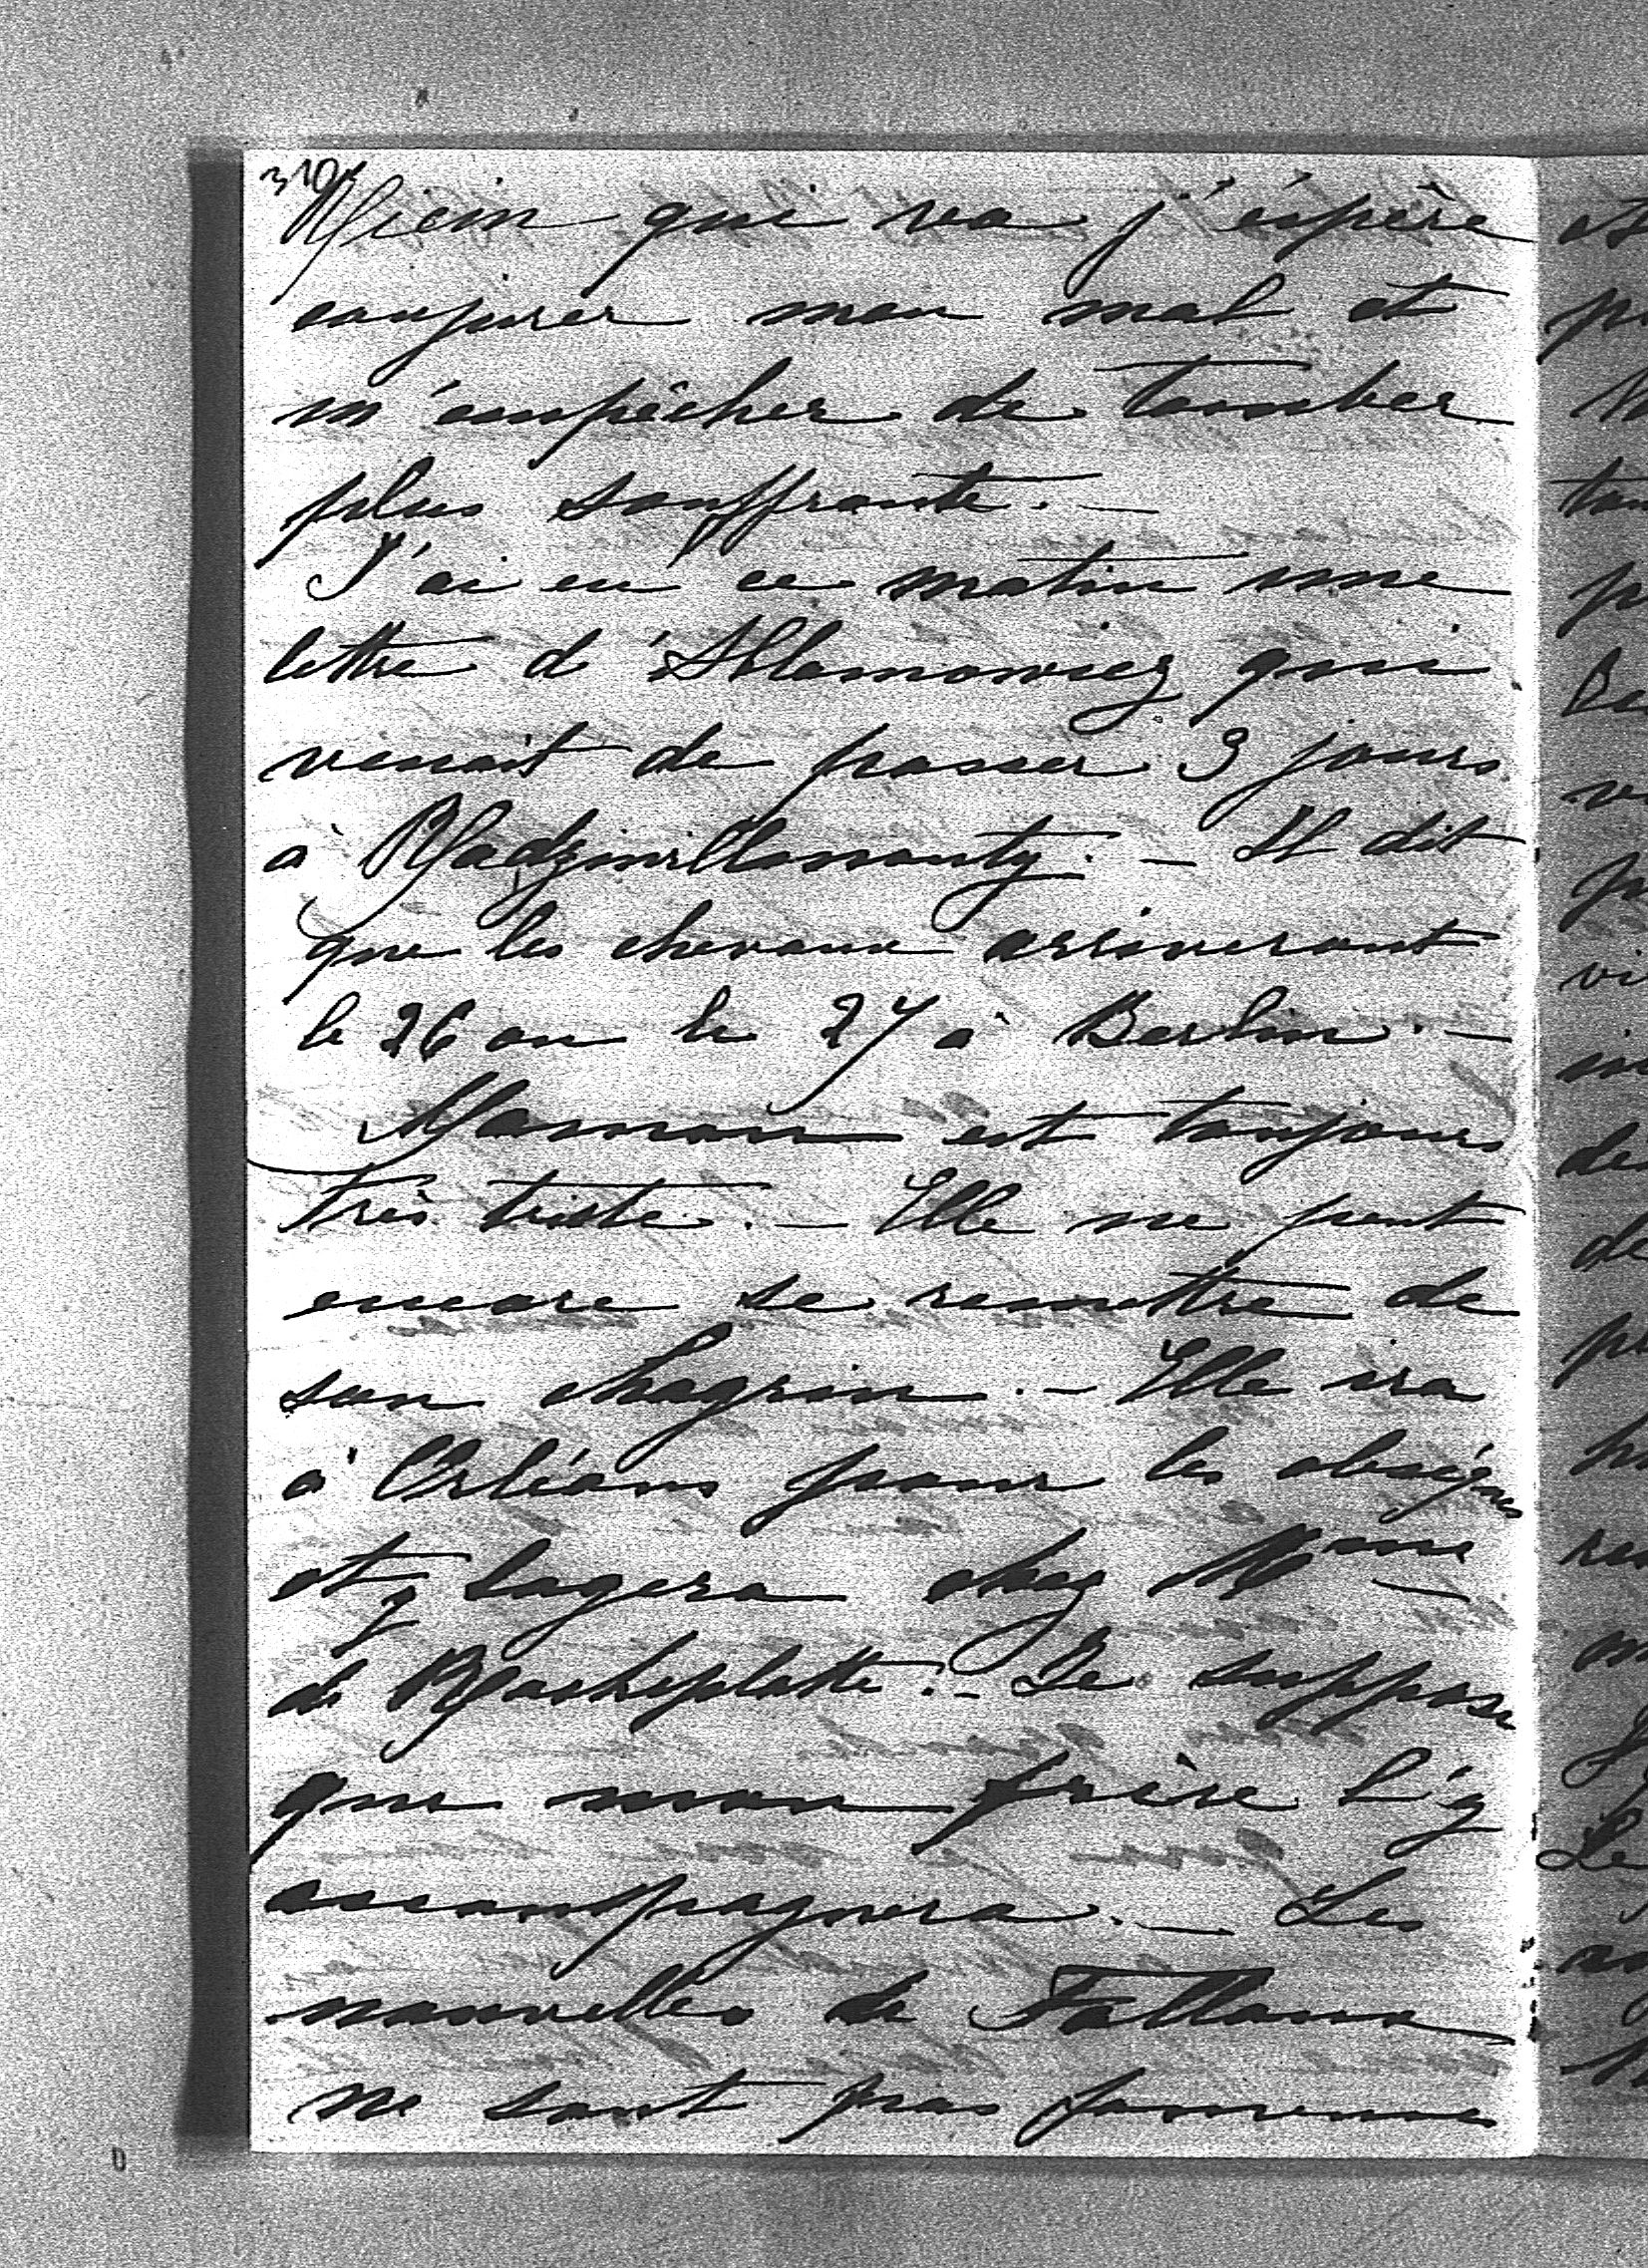 310
Ricin qui va j'éspère
conjurer mon mal et
m'empêcher de tomber
plus souffrante. —
J'ai eu ce matin une
lettre d'Adamowicz qui
venait de passer 3 jours
à Radziwillmonty. — Il dit
que les chevaux arriveront
le 26 ou le 27 à Berlin. —
Maman est toujours
très triste. — Elle ne peut
encore se remettre de
son chagrin. — Elle ira
à Orléans pour les obsèques
et y logera chez Mme
de Rocheplatte. — Je suppose
que mon frère l'y
accompagnera. — Les
nouvelles de
ne sont pas fameuses